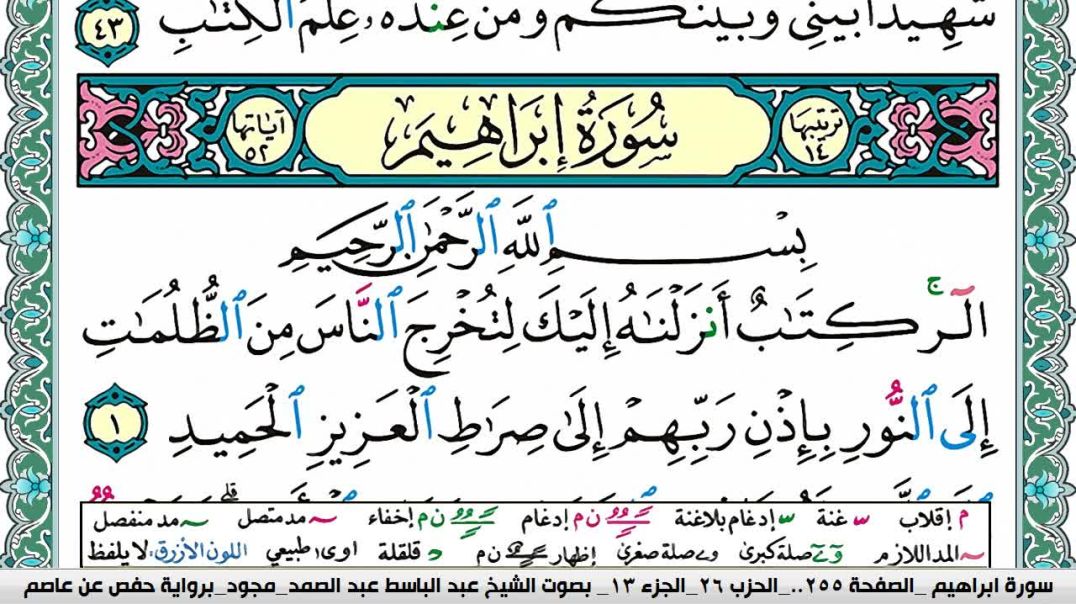 شَهِيدًا بَيْنِي وَبَيْنَكُمْ وَمَنْ عِندَهُۥ عِلْمُ ٱلْكِتَٰبِ ٤٣
ترتيبها ١٤ سُورَةُ إِبْرَاهِيمَ آياتها ٥٢
بِسْمِ ٱللَّهِ ٱلرَّحْمَٰنِ ٱلرَّحِيمِ
الٓر ۚ كِتَٰبٌ أَنزَلْنَٰهُ إِلَيْكَ لِتُخْرِجَ ٱلنَّاسَ مِنَ ٱلظُّلُمَٰتِ
إِلَى ٱلنُّورِ بِإِذْنِ رَبِّهِمْ إِلَىٰ صِرَٰطِ ٱلْعَزِيزِ ٱلْحَمِيدِ ١
م إقلاب غنة إدغام بلاغنة ن م إدغام ن م إخفاء مد متصل مد منفصل
المد اللازم صلة كبرى صلة صغرى إظهار ن م قلقلة اوى طبيعي اللون الأزرق: لا يلفظ
سورة ابراهيم _الصفحة ٢٥٥.._الحزب ٢٦_الجزء ١٣_ بصوت الشيخ عبد الباسط عبد الصمد_مجود_برواية حفص عن عاصم